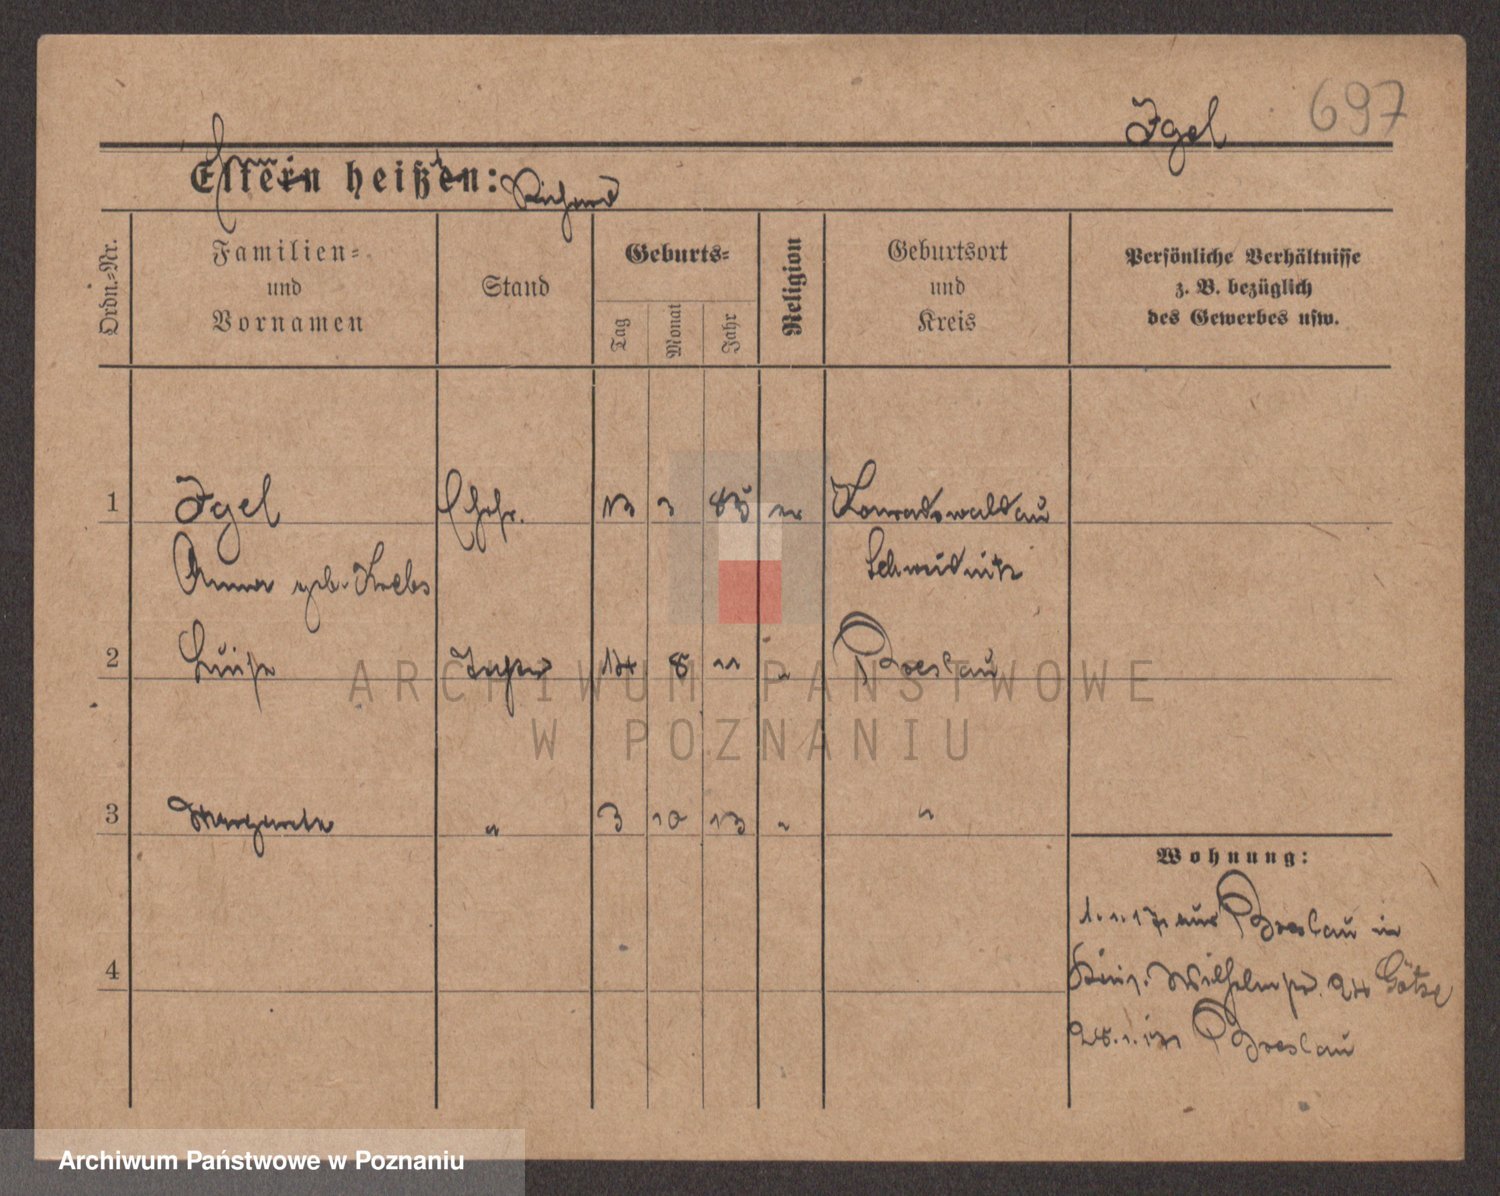 Igel 697
Eltern heißen: Richard
Ordn.-Nr.
Familien-
und
Vornamen
Stand
Geburts-
Tag
Monat
Jahr
Religion
Geburtsort
und
Kreis
Persönliche Verhältnisse
z. B. bezüglich
des Gewerbes usw.
1 Igel Ehefr. 13 3 ev Konradswaldau
Anna geb. Krebs Schweidnitz
2 Luise Tochter 14 8 11 " Breslau
3 Margarete " 3 10 13 " "
Wohnung:
1. 1. 17 aus Breslau in
4
Wilhelmstr. 24 Götze
28. 1. 17 Breslau
ARCHIWUM PAŃSTWOWE
W POZNANIU
Archiwum Państwowe w Poznaniu